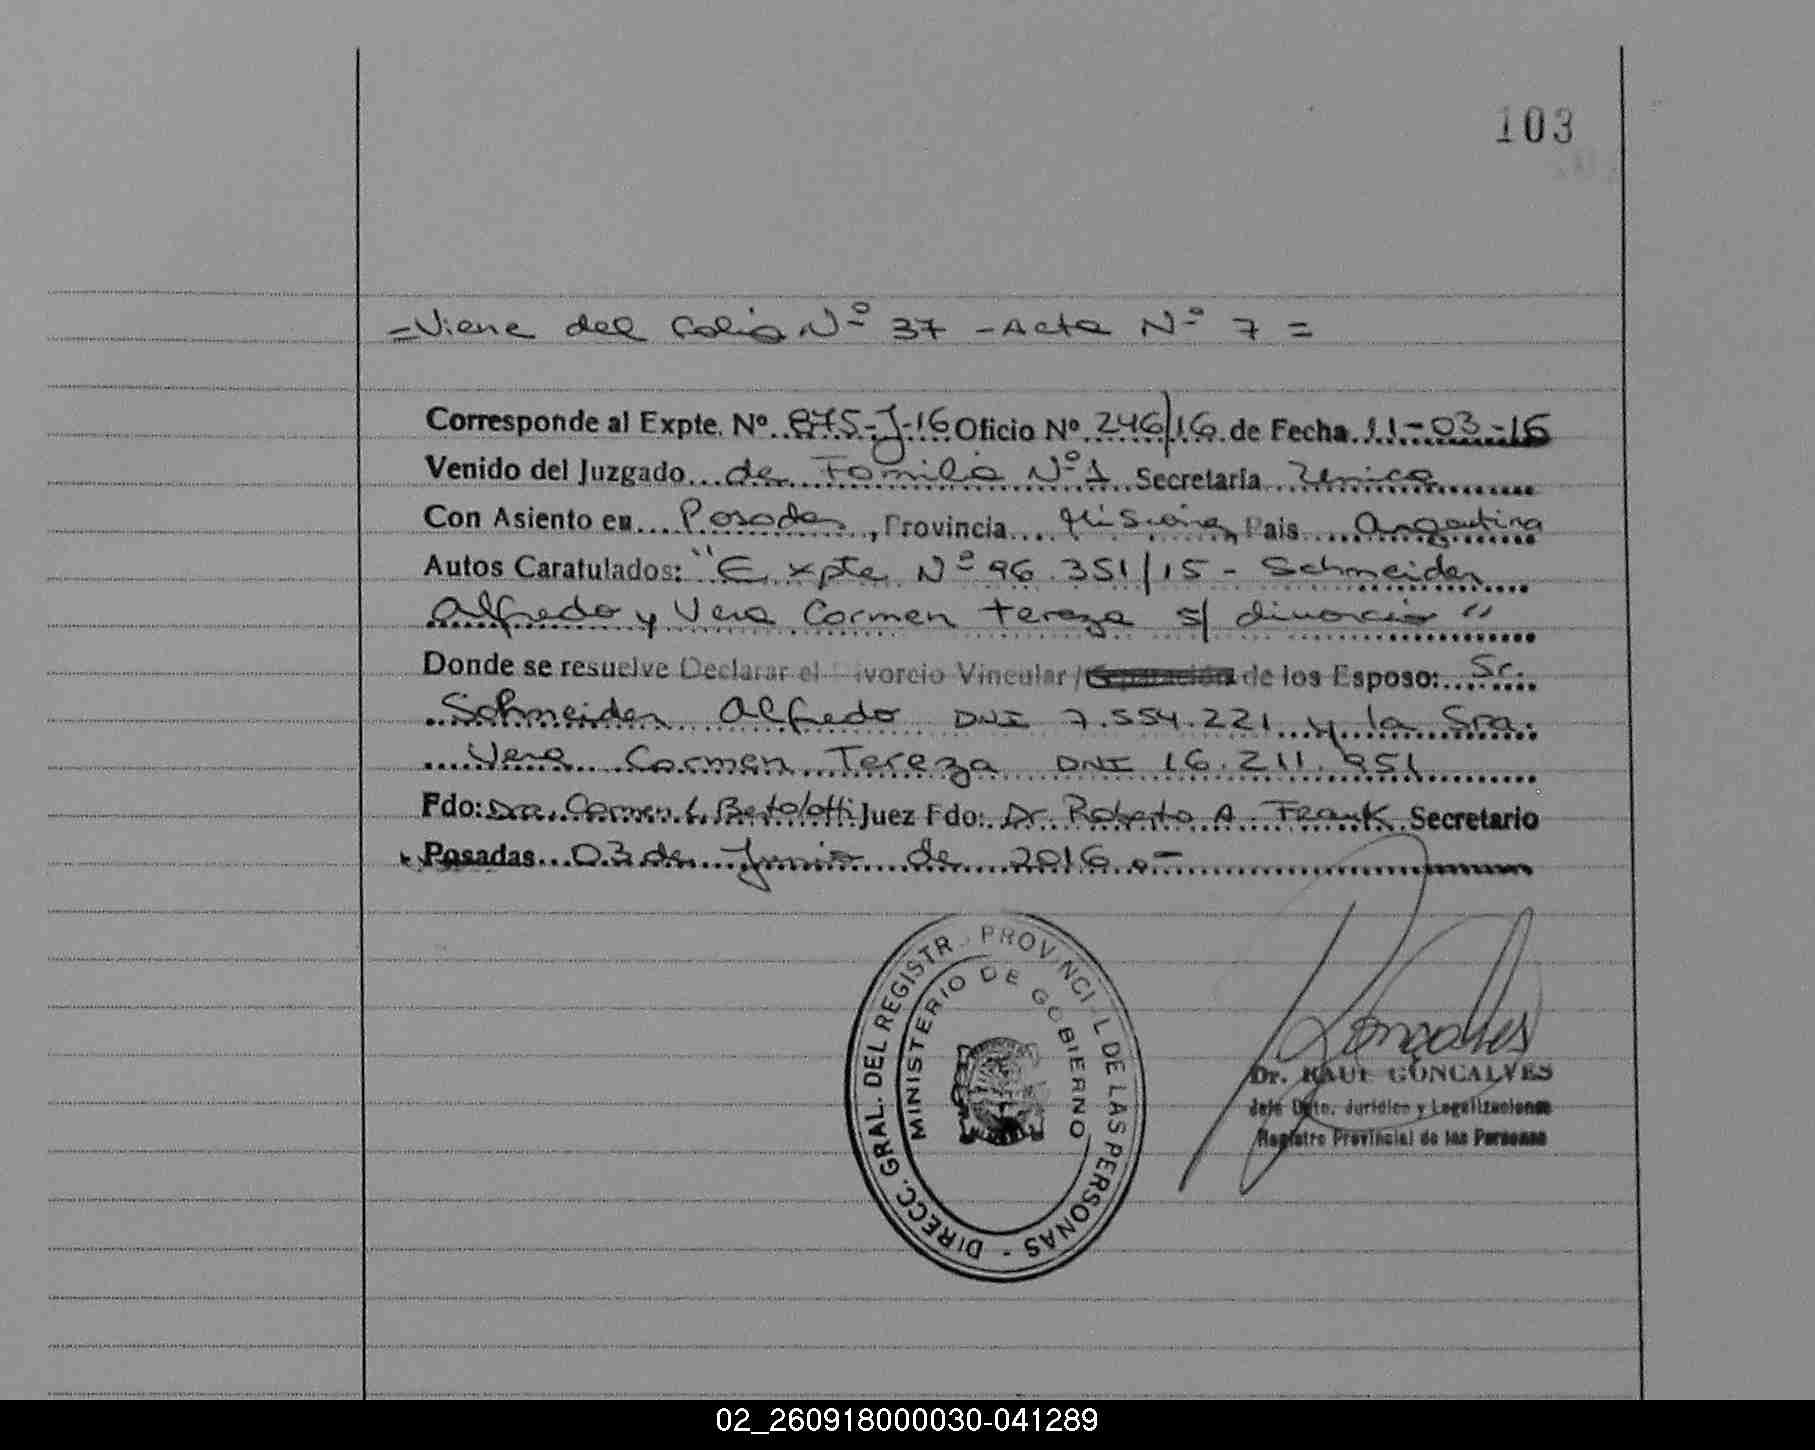 103
=Viene del Folio Nº 37 - Acta Nº 7 =
Corresponde al Expte. Nº 875-J-16 Oficio Nº 246/16 de Fecha 11-03-16
Venido del Juzgado de Familia Nº 1 Secretaria Unica
Con Asiento en Posadas, Provincia Misiones, Pais Argentina
Autos Caratulados: "Expte Nº 96.351/15 - Schneider
Alfredo y Vera Carmen Tereza s/ divorcio"
Donde se resuelve Declarar el Divorcio Vincular / Separación de los Esposo: Sr.
Schneider Alfredo DNI 7.554.221 y la Sra.
Vera Carmen Tereza DNI 16.211.951
Fdo: Dra. Carmen L. Bertolotti Juez Fdo: Dr. Roberto A. Frank Secretario
Posadas 03 de Junio de 2016.-
DIRECC. GRAL. DEL REGISTRO PROVINCIAL DE LAS PERSONAS -
MINISTERIO DE GOBIERNO
Dr. RAUL GONCALVES
Jefe Dpto. Jurídico y Legalizaciones
Registro Provincial de las Personas
02_260918000030-041289